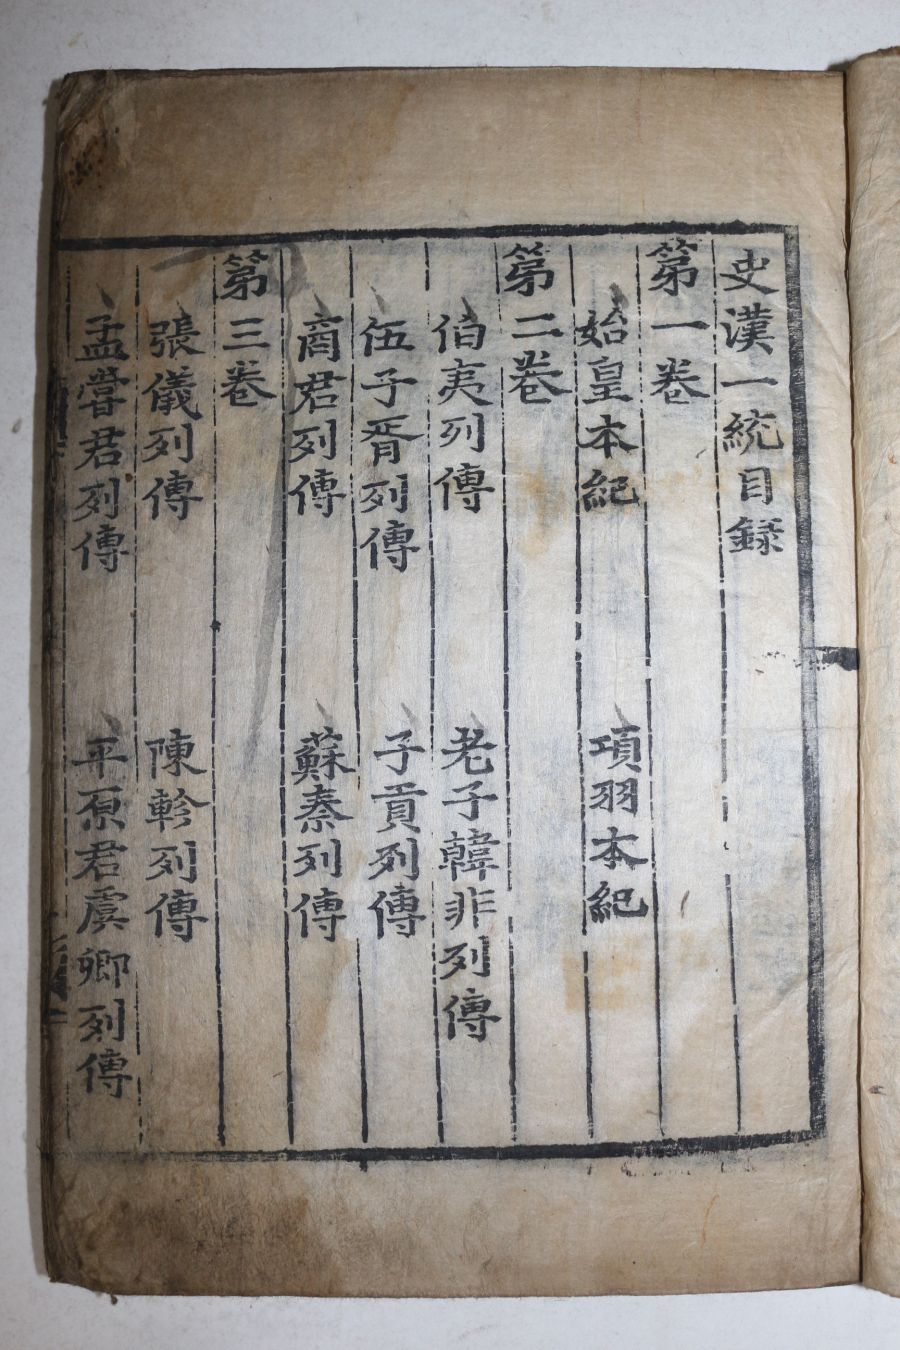 史漢一統目録
第一卷
始皇本紀 項羽本紀
第二卷
伯夷列傳 老子韓非列傳
伍子胥列傳 子貢列傳
商君列傳 蘇秦列傳
第三卷
張儀列傳 陳軫列傳
孟嘗君列傳 平原君虞卿列傳